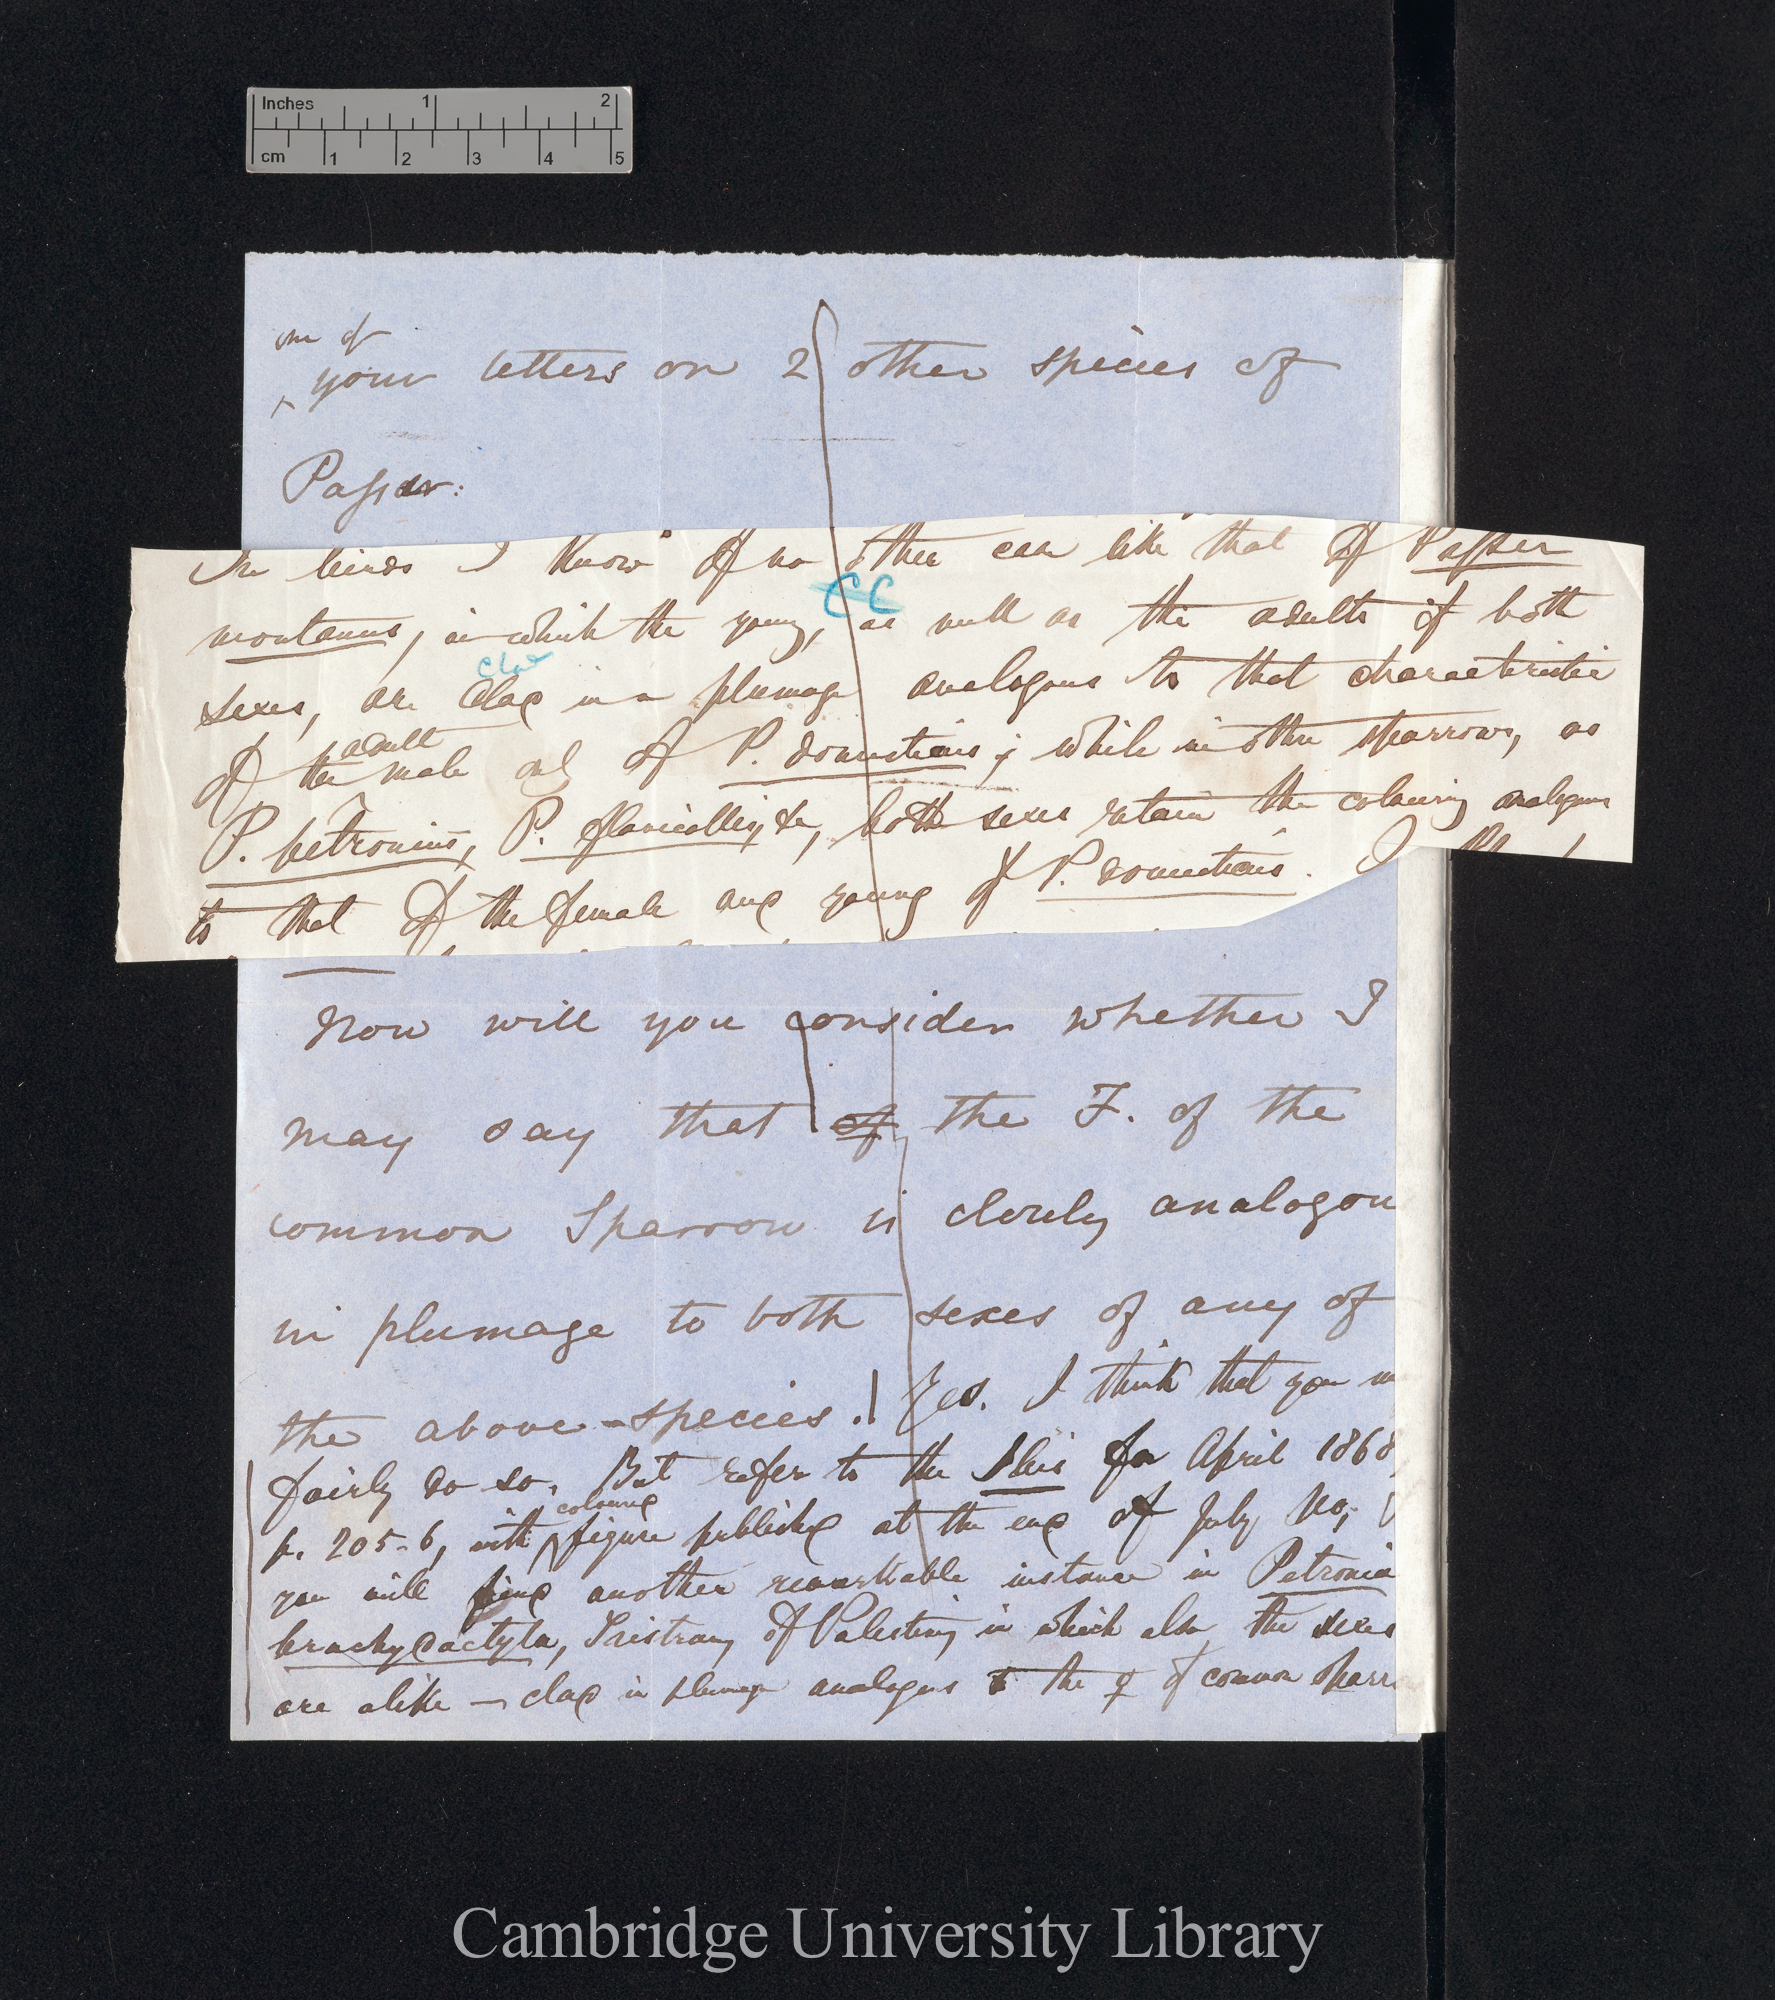 Inches 1 2
cm 1 2 3 4 5
one of
your letters on 2 other species of
Passer:
In birds I know of no other case like that of Passer
CC
montanus, in which the young, as well as the adults of both
clad
sexes, are clad in a plumage analogous to that characteristic
adult
of the male only of P. domesticus; while in other sparrows, as
P. petronius, P. flavicollis, &c, both sexes retain the colouring analogous
to that of the female and young of P. domesticus. I
Now will you consider whether I
may say that of the F. of the
common Sparrow is closely analogou
in plumage to both sexes of any of
the above-species. Yes. I think that you m
fairly do so. But refer to the Ibis for April 1868,
coloured
p. 205-6, with figure published at the end of July No;
you will find another remarkable instance in Petronia
brachydactyla, Tristram, of Palestine, in which also the sexes
are alike — clad in plumage analogous to the ♀ of common sparr
Cambridge University Library